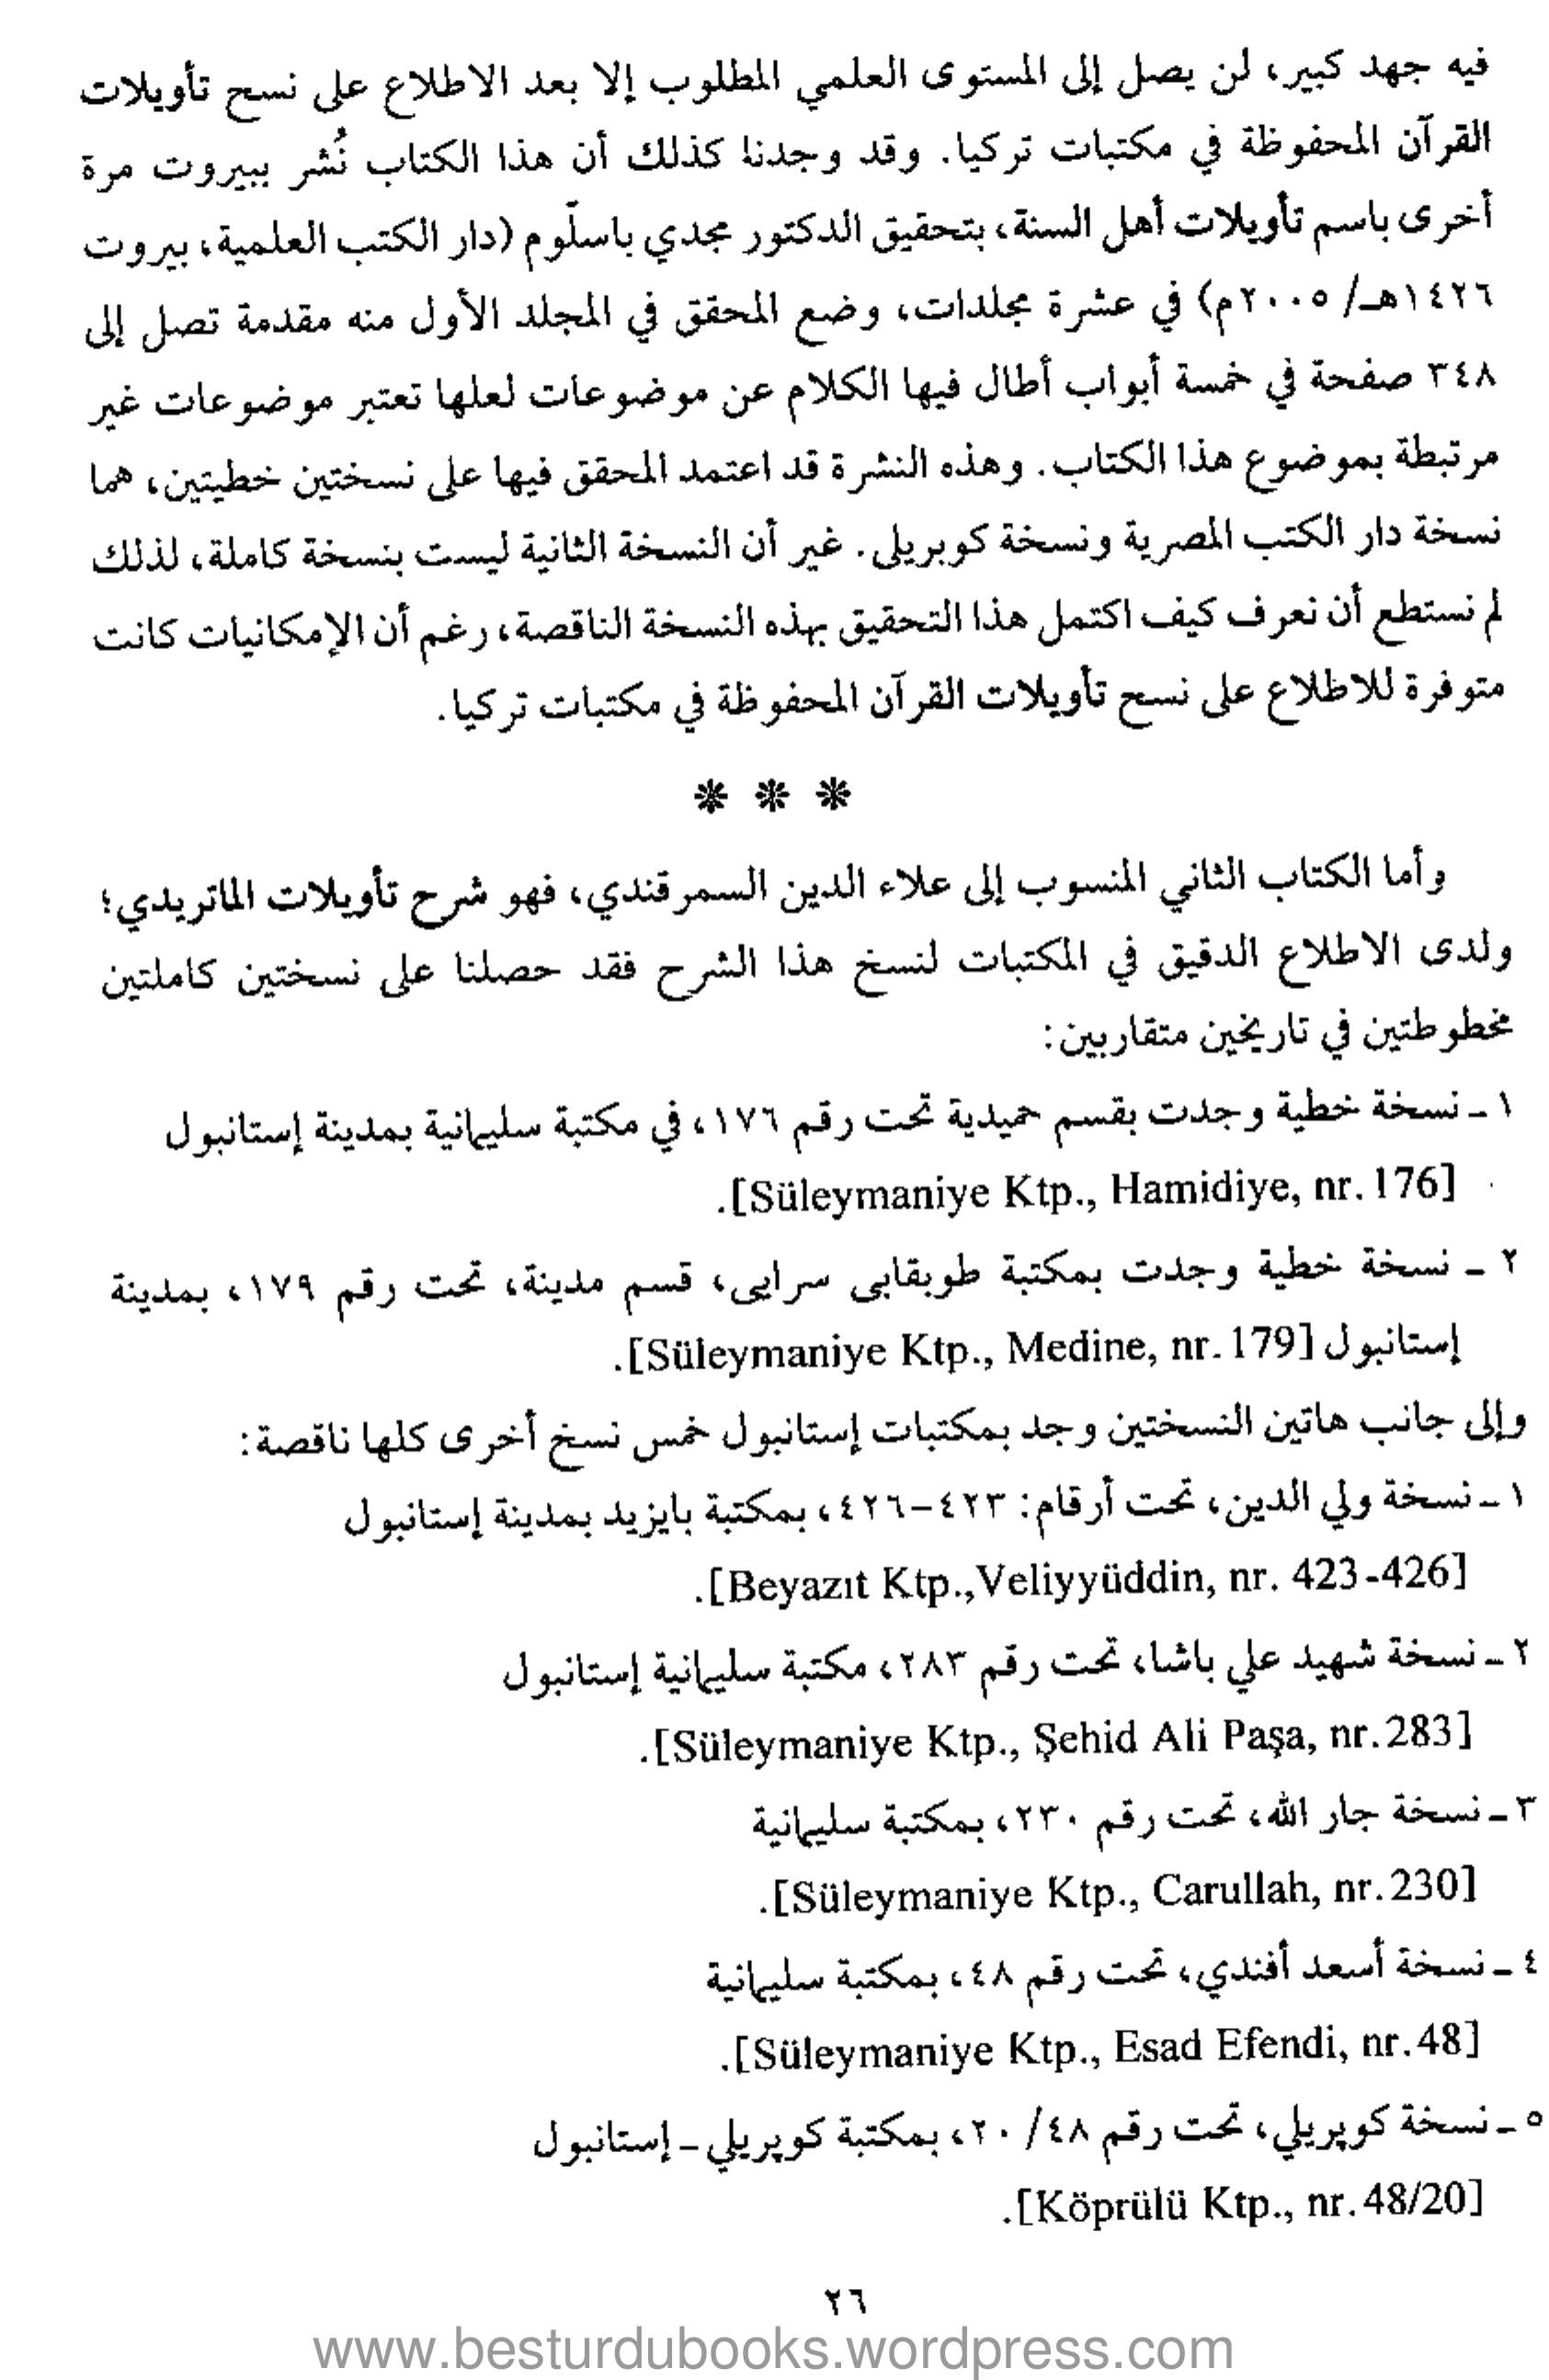 فيه جهد كبير، لن يصل إلى المستوى العلمي المطلوب إلا بعد الاطلاع على نسح تأويلات
القرآن المحفوظة في مكتبات تركيا. وقد وجدنا كذلك أن هذا الكتاب نُشر ببيروت مرة
أخرى باسم تأويلات أهل السنة، بتحقيق الدكتور مجدي باسلّوم (دار الكتب العلمية، بيروت
١٤٢٦هـ/ ٢٠٠٥م) في عشرة مجلدات، وضع المحقق في المجلد الأول منه مقدمة تصل إلى
٣٤٨ صفحة في خمسة أبواب أطال فيها الكلام عن موضوعات لعلها تعتبر موضوعات غير
مرتبطة بموضوع هذا الكتاب. وهذه النشرة قد اعتمد المحقق فيها على نسختين خطيتين، هما
نسخة دار الكتب المصرية ونسخة كوبريلى. غير أن النسخة الثانية ليست بنسخة كاملة، لذلك
لم نستطع أن نعرف كيف اكتمل هذا التحقيق بهذه النسخة الناقصة، رغم أن الإمكانيات كانت
متوفرة للاطلاع على نسح تأويلات القرآن المحفوظة في مكتبات تركيا.
* * *
وأما الكتاب الثاني المنسوب إلى علاء الدين السمرقندي، فهو شرح تأويلات الماتريدي؛
ولدى الاطلاع الدقيق في المكتبات لنسخ هذا الشرح فقد حصلنا على نسختين كاملتين
مخطوطتين في تاريخين متقاربين:
١ ـ نسخة خطية وجدت بقسم حميدية تحت رقم ١٧٦، في مكتبة سليمانية بمدينة إستانبول
[Süleymaniye Ktp., Hamidiye, nr. 176].
٢ ـ نسخة خطية وجدت بمكتبة طوبقابى سرايى، قسم مدينة، تحت رقم ١٧٩، بمدينة
إستانبول [Süleymaniye Ktp., Medine, nr. 179].
وإلى جانب هاتين النسختين وجد بمكتبات إستانبول خمس نسخ أخرى كلها ناقصة:
١ ـ نسخة ولي الدين، تحت أرقام: ٤٢٣-٤٢٦، بمكتبة بايزيد بمدينة إستانبول
[Beyazıt Ktp.,Veliyyüddin, nr. 423-426].
٢ ـ نسخة شهيد علي باشا، تحت رقم ٢٨٣، مكتبة سليمانية إستانبول
[Süleymaniye Ktp., Şehid Ali Paşa, nr. 283].
٣ ـ نسخة جار الله، تحت رقم ٢٣٠، بمكتبة سليمانية
[Süleymaniye Ktp., Carullah, nr. 230].
٤ ـ نسخة أسعد أفندي، تحت رقم ٤٨، بمكتبة سليمانية
[Süleymaniye Ktp., Esad Efendi, nr. 48].
٥ ـ نسخة كوپريلي، تحت رقم ٤٨/ ٢٠، بمكتبة كوپريلي ـ إستانبول
[Köprülü Ktp., nr. 48/20].
٢٦
www.besturdubooks.wordpress.com